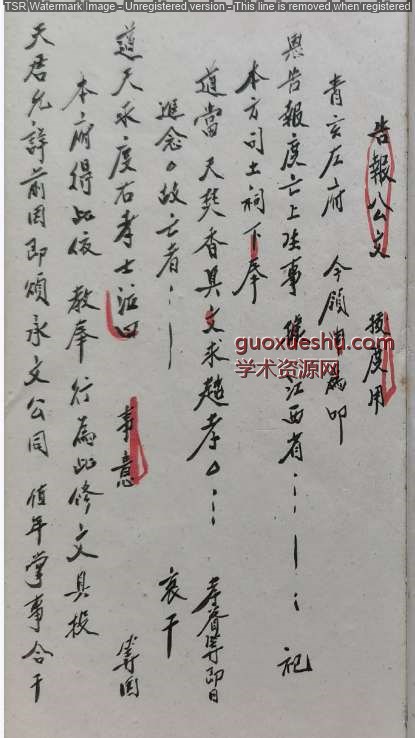 TSR Watermark Image - Unregistered version - This line is removed when registered
告報公文 援度用
青玄左府 今領
與告報度亡上生事 江西省 祀
本方司土祠下奉
道當天焚香具文求超孝 孝眷等即日
進念 故亡者 哀干
道天永度右孝士泣四 事意 等因
本府得此依教奉行為此修文具投
天君允詳前因即頒永文公同 值年掌事合干
guoxueshu.com
学术资源网